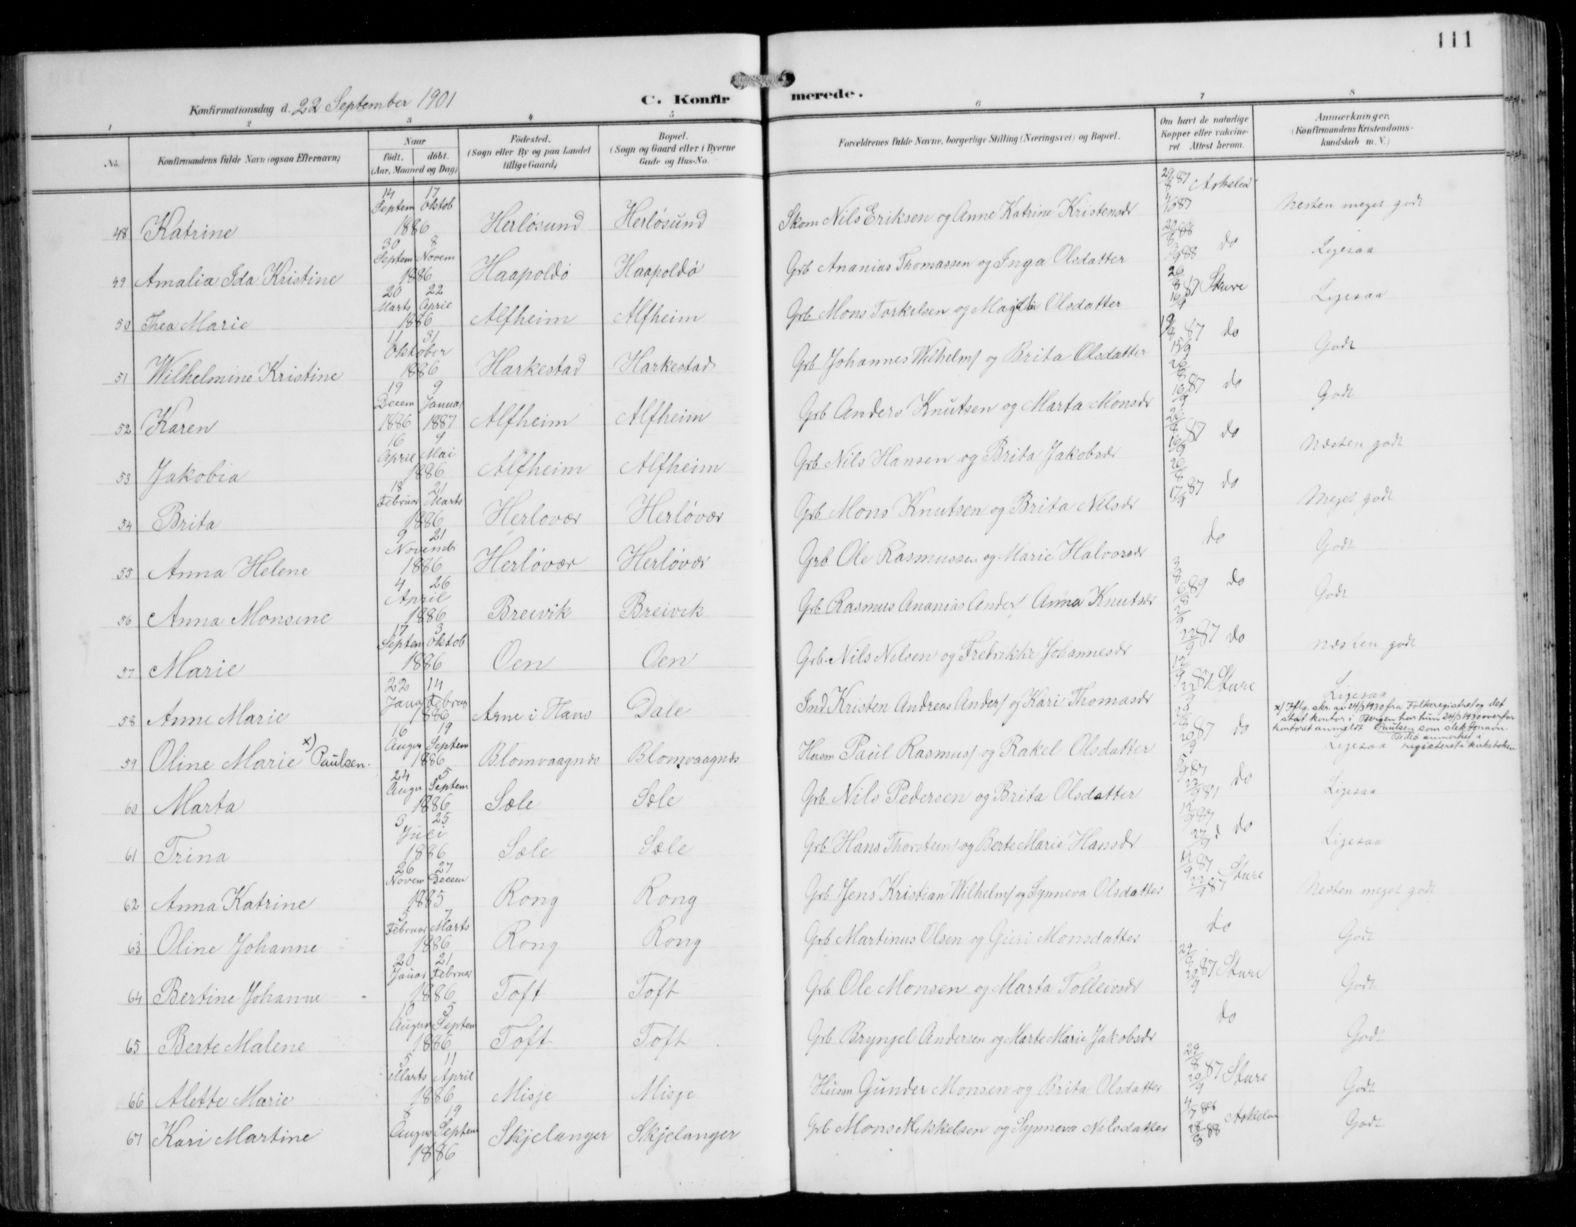 111
Konfirmationsdag d. 22 September 1901
C. Konfirmerede.
1 2 3 4 5 6 7 8
No.
Konfirmandens fulde Navn (ogsaa Efternavn)
Naar
født. døbt.
(Aar, Maaned og Dag)
Fødested.
(Sogn eller By og paa Landet
tillige Gaard)
Bopæl.
(Sogn og Gaard eller i Byerne
Gade og Hus-No.
Forældrenes fulde Navne, borgerlige Stilling (Næringsvei) og Bopæl.
Om havt de naturlige
Kopper eller vakcine-
ret Attest herom.
Anmærkninger.
(Konfirmandens Kristendoms-
kundskab m. V.)
48 Katrine 14 Septem 17 Oktob 1886 Herløsund Herløsund Skom Nils Eriksen og Anne Katrine Kristensdr Næsten meget godt
49 Amalia Ida Kristine 30 Septem 8 Novem 1886 Haapoldø Haapoldø Grb Ananias Thomassen og Inga Olsdatter do Ligesaa
50 Thea Marie 20 Marts 22 April 1886 Alfheim Alfheim Grb Mons Torkelsen og Magda Olsdatter 87 Sture Ligesaa
51 Wilhelmine Kristine 1 31 Oktober 1886 Harkestad Harkestad Grb Johannes Wilhelms og Brita Olsdatter 87 do Godt
52 Karen 19 Decem 9 Januar 1886 1887 Alfheim Alfheim Grb Anders Knutsen og Marta Monsdr 87 do Godt
53 Jakobia 16 April 9 Mai 1886 Alfheim Alfheim Grb Nils Hansen og Brita Jakobsdr 87 do Næsten godt
54 Brita 18 Februar 21 Marts 1886 Herlovær Herløvær Grb Mons Knutsen og Brita Nilsdr 87 do Meget godt
55 Anna Helene 9 21 Novemb 1886 Herløvær Herløvær Grb Ole Rasmussen og Marie Halvorsdr do Godt
56 Anna Monsine 4 26 April 1886 Breivik Breivik Grb Rasmus Ananias Anders Anna Knutsdr 89 do Godt
57 Marie 17 Septem 3 Oktob 1886 Oen Oen Grb Nils Nilsen og Fredrikke Johannesdr 87 do Næsten godt
58 Anne Marie 22 Janua 14 Februar 1886 Arne i Haus Dale Ind Kristen Andreas Anders og Kari Thomasdr 87 Sture Ligesaa
x) Iflg. skr. av 24/3 1930 fra Folkeregistret og det
stat. kontor i Bergen har hun 24/3 1930 overfor
kontoret anmeldt Paulsen som slektsnavn.
59 Oline Marie x) Paulsen. 16 Augus 19 Septem 1886 Blomvaagnes Blomvaagnes Husm Paul Rasmus og Rakel Olsdatter 87 do Ligesaa
60 Marta 24 Augus 5 Septem 1886 Sæle Sæle Grb Nils Pedersen og Brita Olsdatter do Ligesaa
61 Trina 3 25 Juli 1886 Sæle Sæle Grb Hans Thorsteins og Berte Marie Hansdr do Ligesaa
62 Anna Katrine 26 Novem 27 Decem 1885 Rong Rong Grb Jens Kristian Wilhelms og Synneva Olsdatter 87 Sture Næsten meget godt
63 Oline Johanne 5 Februar 7 Marts 1886 Rong Rong Grb Martinus Olsen og Guri Monsdatter do Godt
64 Bertine Johanne 20 Januar 21 Februar 1886 Toft Toft Grb Ole Monsen og Marta Tolleivsdr 87 Sture Godt
65 Berte Malene Augus 5 Septem 1886 Toft Toft Grb Bryngel Andersen og Marte Marie Jakobsdr do Godt
66 Alette Marie 5 Marts 11 April 1886 Misje Misje Husm Gunder Monsen og Brita Olsdatter 87 Sture Godt
67 Kari Martine 8 Augus 19 Septem 1886 Skjelanger Skjelanger Grb Mons Mikkelsen og Synneva Nilsdatter Godt